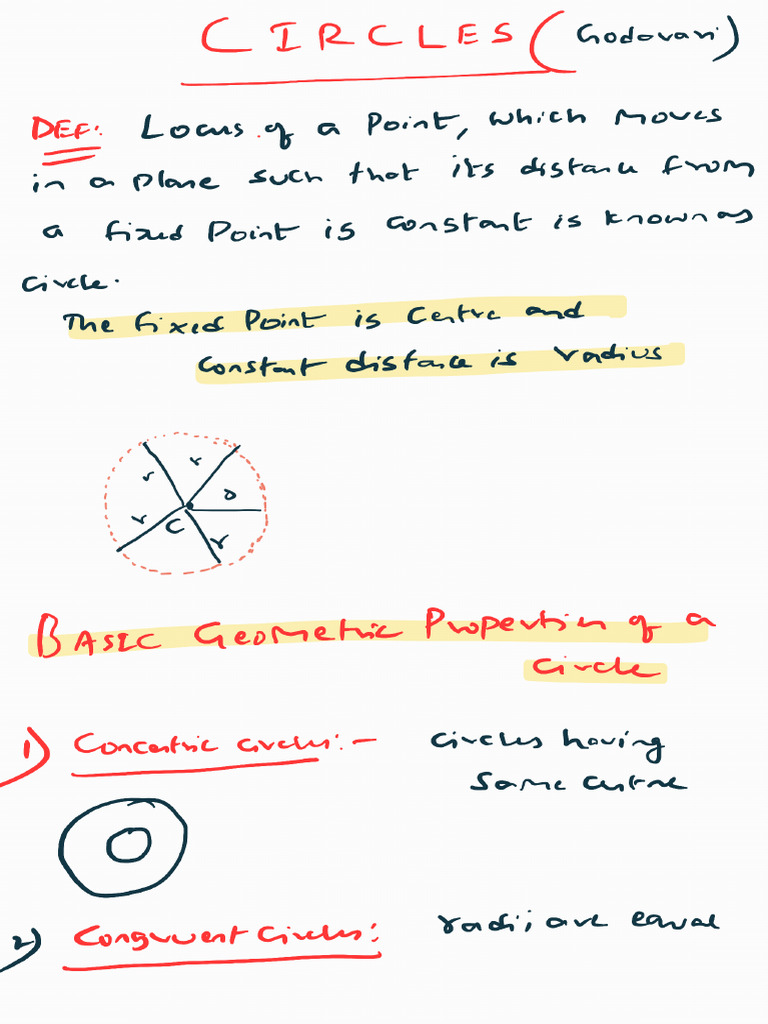 CIRCLES (Godavari)
DEF: Locus of a Point, which moves
in a plane such that its distance from
a fixed Point is constant is known as
circle.
The fixed Point is Centre and
constant distance is radius
r r
r
r C
r
BASIC Geometric Properties of a
circle
1) Concentric circles:- circles having
same centre
2) Congruent Circles: radii are equal